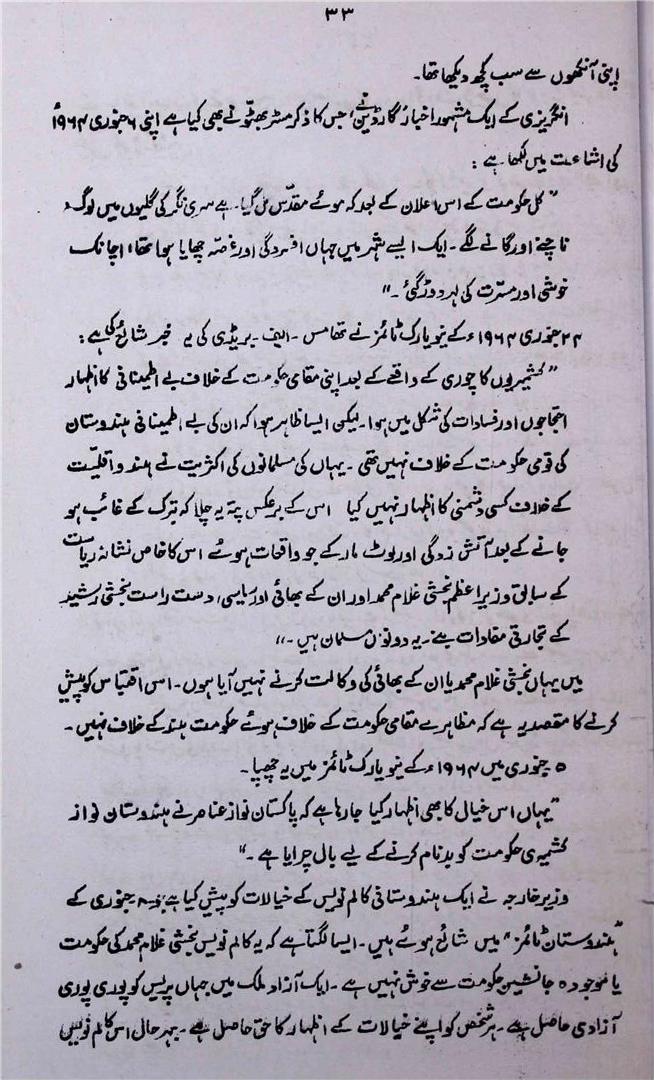 ۳۳
اپنی آنکھوں سے سب کچھ دیکھا تھا۔
انگریزی کے ایک مشہور اخبار گارڈین نے جس کا ذکر مسٹر بھٹو نے بھی کیا ہے اپنی ۶ جنوری ۱۹۶۴ء
کی اشاعت میں لکھا ہے :
"کل حکومت کے اس اعلان کے بعد کہ موئے مقدّس مل گیا۔ ہے سری نگر کی گلیوں میں لوگ
ناچنے اور گانے لگے۔ ایک ایسے شہر میں جہاں افسردگی اور غصّہ چھایا ہوا تھا، اچانک
خوشی اور مسرّت کی لہر دوڑ گئی۔"
۲۴ جنوری ۱۹۶۴ء کے نیویارک ٹائمز نے تھامس۔ ایف۔ بریڈی کی یہ خبر شائع کی ہے :
"کشمیریوں کا چوری کے واقعے کے بعد اپنی مقامی حکومت کے خلاف بے اطمینانی کا اظہار
احتجاجوں اور فسادات کی شکل میں ہوا۔ لیکن ایسا ظاہر ہوا کہ ان کی بے اطمینانی ہندوستان
کی قومی حکومت کے خلاف نہیں تھی۔ یہاں کی مسلمانوں کی اکثریت نے ہندو اقلیّت
کے خلاف کسی دشمنی کا اظہار نہیں کیا اس کے برعکس پتہ یہ چلا کہ تبرک کے غائب ہو
جانے کے بعد آتش زدگی اور لوٹ مار کے جو واقعات ہوئے اس کا خاص نشانہ ریاست
کے سابق وزیر اعظم بخشی غلام محمد اور ان کے بھائی اور سیاسی دست راست بخشی رشید
کے تجارتی مفادات بنے۔ یہ دونوں مسلمان ہیں۔"
میں یہاں بخشی غلام محمد یا ان کے بھائی کی وکالت کرنے نہیں آیا ہوں۔ اس اقتباس کو پیش
کرنے کا مقصد یہ ہے کہ مظاہرے مقامی حکومت کے خلاف ہوئے حکومت ہند کے خلاف نہیں۔
۵ جنوری میں ۱۹۶۴ء کے نیویارک ٹائمز میں یہ چھپا۔
"یہاں اس خیال کا بھی اظہار کیا جا رہا ہے کہ پاکستان نواز عناصر نے ہندوستان نواز
کشمیری حکومت کو بدنام کرنے کے لیے بال چرایا ہے۔"
وزیر خارجہ نے ایک ہندوستانی کالم نویس کے خیالات کو پیش کیا ہے جو جنوری کے
"ہندوستان ٹائمز" میں شائع ہوئے ہیں۔ ایسا لگتا ہے کہ یہ کالم نویس بخشی غلام محمد کی حکومت
یا موجودہ جانشین حکومت سے خوش نہیں ہے۔ ایک آزاد ملک میں جہاں پریس کو پوری پوری
آزادی حاصل ہے۔ ہر شخص کو اپنے خیالات کے اظہار کا حق حاصل ہے۔ بہر حال اس کالم نویس